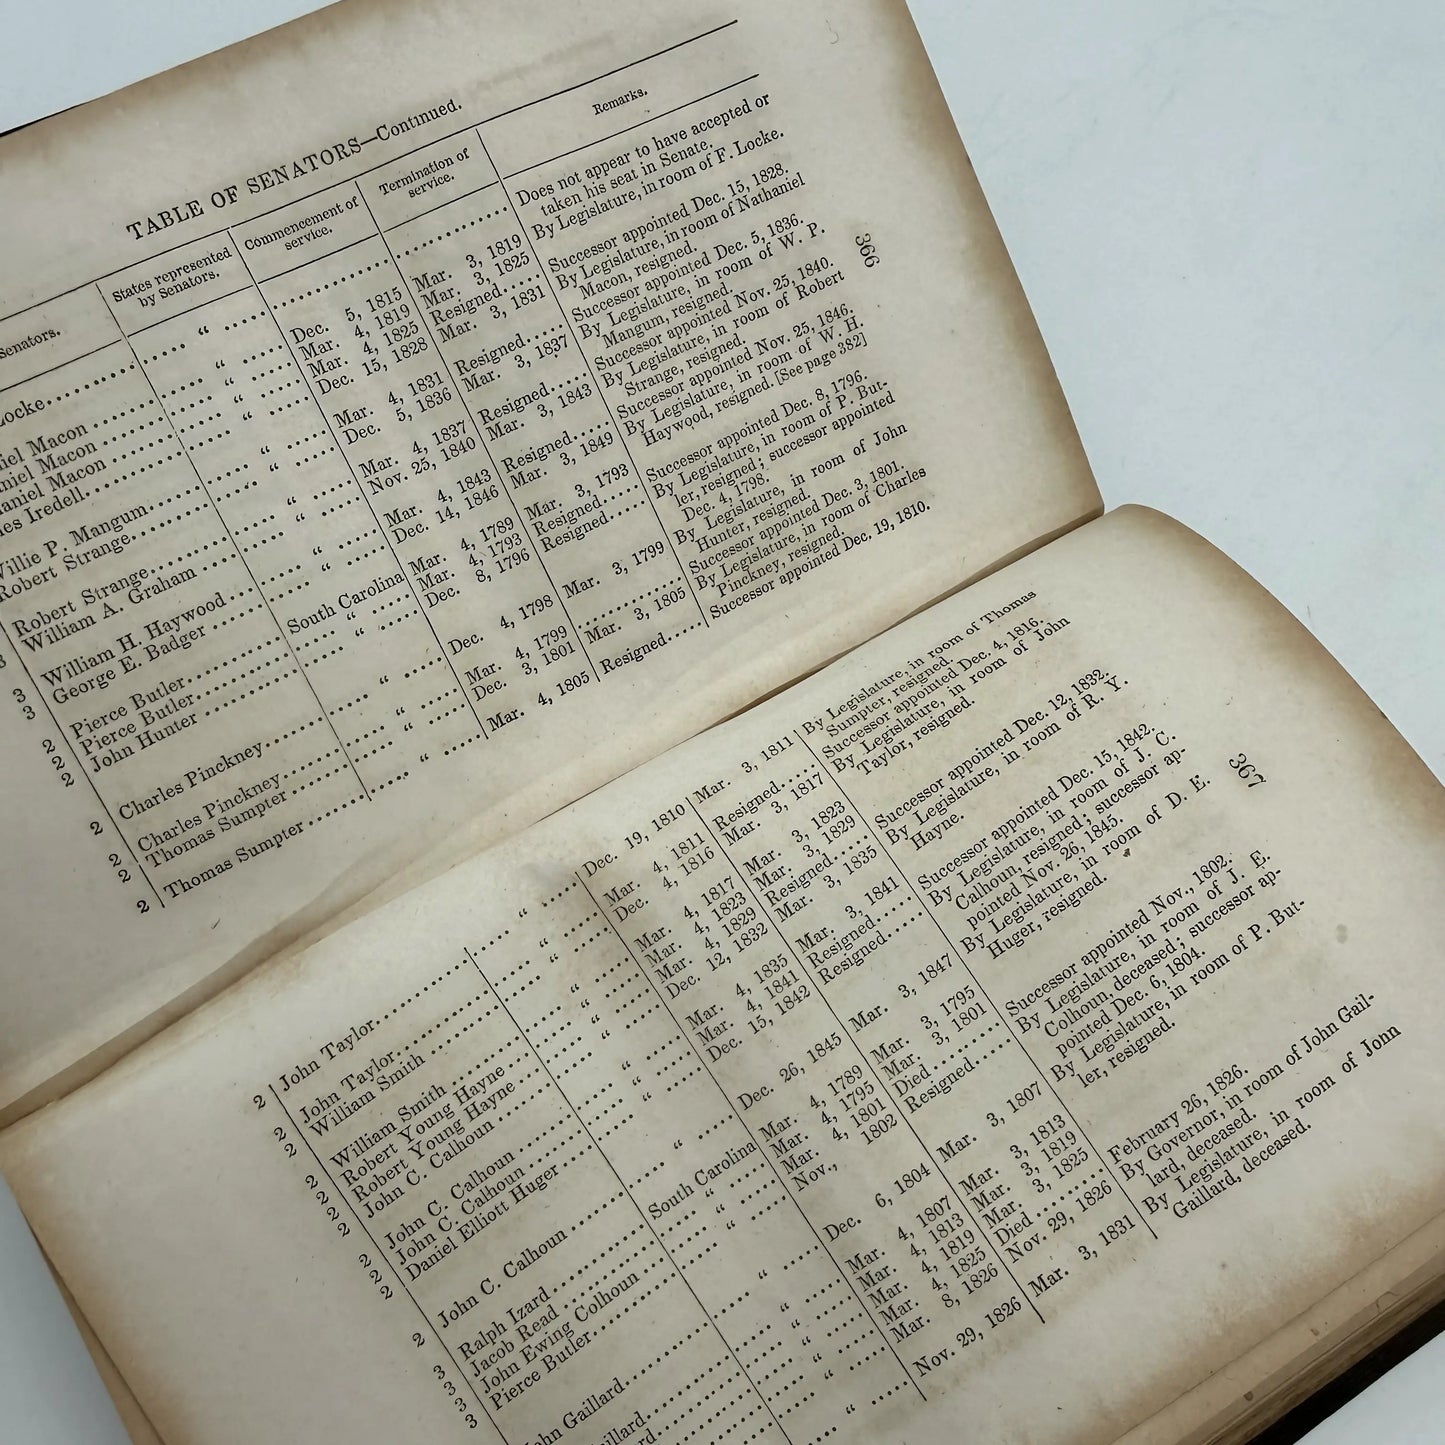 TABLE OF SENATORS—Continued.
Senators. States represented by Senators. Commencement of service. Termination of service. Remarks.
Locke........ “ ........ Does not appear to have accepted or
taken his seat in Senate.
Macon ........ “ ..... Dec. 5, 1815 Mar. 3, 1819 By Legislature, in room of F. Locke.
Macon ........ “ ..... Mar. 4, 1819 Mar. 3, 1825
Macon ........ “ ..... Mar. 4, 1825 Resigned..... Successor appointed Dec. 15, 1828.
Iredell........ “ ..... Dec. 15, 1828 Mar. 3, 1831 By Legislature, in room of Nathaniel
Macon, resigned.
Willie P. Mangum........ “ ..... Mar. 4, 1831 Resigned..... Successor appointed Dec. 5, 1836.
Robert Strange........ “ ..... Dec. 5, 1836 Mar. 3, 1837 By Legislature, in room of W. P.
Mangum, resigned.
3 Robert Strange........ “ ..... Mar. 4, 1837 Resigned..... Successor appointed Nov. 25, 1840.
William A. Graham ........ “ ..... Nov. 25, 1840 Mar. 3, 1843 By Legislature, in room of Robert
Strange, resigned.
3 William H. Haywood ........ “ ..... Mar. 4, 1843 Resigned..... Successor appointed Nov. 25, 1846.
3 George E. Badger ........ “ ..... Dec. 14, 1846 Mar. 3, 1849 By Legislature, in room of W. H.
Haywood, resigned. [See page 382]
2 Pierce Butler........ South Carolina Mar. 4, 1789 Mar. 3, 1793
2 Pierce Butler........ “ ..... Mar. 4, 1793 Resigned..... Successor appointed Dec. 8, 1796.
2 John Hunter ........ “ ..... Dec. 8, 1796 Resigned..... By Legislature, in room of P. But-
ler, resigned; successor appointed
Dec. 4, 1798.
2 Charles Pinckney........ “ ..... Dec. 4, 1798 Mar. 3, 1799 By Legislature, in room of John
Hunter, resigned.
2 Charles Pinckney........ “ ..... Mar. 4, 1799 ............ Successor appointed Dec. 3, 1801.
2 Thomas Sumpter ........ “ ..... Dec. 3, 1801 Mar. 3, 1805 By Legislature, in room of Charles
Pinckney, resigned.
2 Thomas Sumpter ........ “ ..... Mar. 4, 1805 Resigned..... Successor appointed Dec. 19, 1810.
366
2 John Taylor........ “ ..... Dec. 19, 1810 Mar. 3, 1811 By Legislature, in room of Thomas
Sumpter, resigned.
2 John Taylor........ “ ..... Mar. 4, 1811 Resigned..... Successor appointed Dec. 4, 1816.
2 William Smith ........ “ ..... Dec. 4, 1816 Mar. 3, 1817 By Legislature, in room of John
Taylor, resigned.
2 William Smith ........ “ ..... Mar. 4, 1817 Mar. 3, 1823
2 Robert Young Hayne ........ “ ..... Mar. 4, 1823 Mar. 3, 1829
2 Robert Young Hayne ........ “ ..... Mar. 4, 1829 Resigned..... Successor appointed Dec. 12, 1832.
2 John C. Calhoun ........ “ ..... Dec. 12, 1832 Mar. 3, 1835 By Legislature, in room of R. Y.
Hayne.
2 John C. Calhoun ........ “ ..... Mar. 4, 1835 Mar. 3, 1841
2 John C. Calhoun ........ “ ..... Mar. 4, 1841 Resigned..... Successor appointed Dec. 15, 1842.
2 Daniel Elliott Huger ........ “ ..... Dec. 15, 1842 Resigned..... By Legislature, in room of J. C.
Calhoun, resigned; successor ap-
pointed Nov. 26, 1845.
2 John C. Calhoun ........ “ ..... Dec. 26, 1845 Mar. 3, 1847 By Legislature, in room of D. E.
Huger, resigned.
3 Ralph Izard ........ South Carolina Mar. 4, 1789 Mar. 3, 1795
3 Jacob Read ........ “ ..... Mar. 4, 1795 Mar. 3, 1801
3 John Ewing Colhoun ........ “ ..... Mar. 4, 1801 Died ........ Successor appointed Nov., 1802.
3 Pierce Butler........ “ ..... Nov., 1802 Resigned..... By Legislature, in room of J. E.
Colhoun, deceased; successor ap-
pointed Dec. 6, 1804.
John Gaillard........ “ ..... Dec. 6, 1804 Mar. 3, 1807 By Legislature, in room of P. But-
ler, resigned.
Gaillard........ “ ..... Mar. 4, 1807 Mar. 3, 1813
“ ..... Mar. 4, 1813 Mar. 3, 1819
“ ..... Mar. 4, 1819 Mar. 3, 1825
“ ..... Mar. 4, 1825 Died ........ February 26, 1826.
“ ..... Mar. 8, 1826 Nov. 29, 1826 By Governor, in room of John Gail-
lard, deceased.
“ ..... Nov. 29, 1826 Mar. 3, 1831 By Legislature, in room of John
Gaillard, deceased.
367